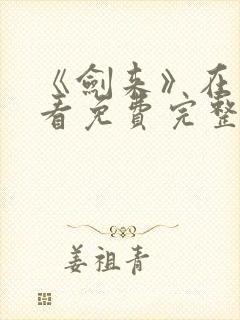 《剑来》在
看免费完整
姜祖青